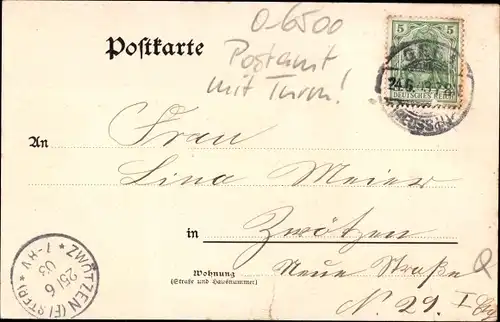 0-6500
Postamt
mit Turm!
Postkarte
5 5
DEUTSCHES REICH
GERA
24.6.
An
Frau
Lina Meier
in Zwötzen
Wohnung
(Straße und Hausnummer)
Neue Straße
N. 29. I
ZWÖTZEN (ELSTER)
25 6
03
7-8V